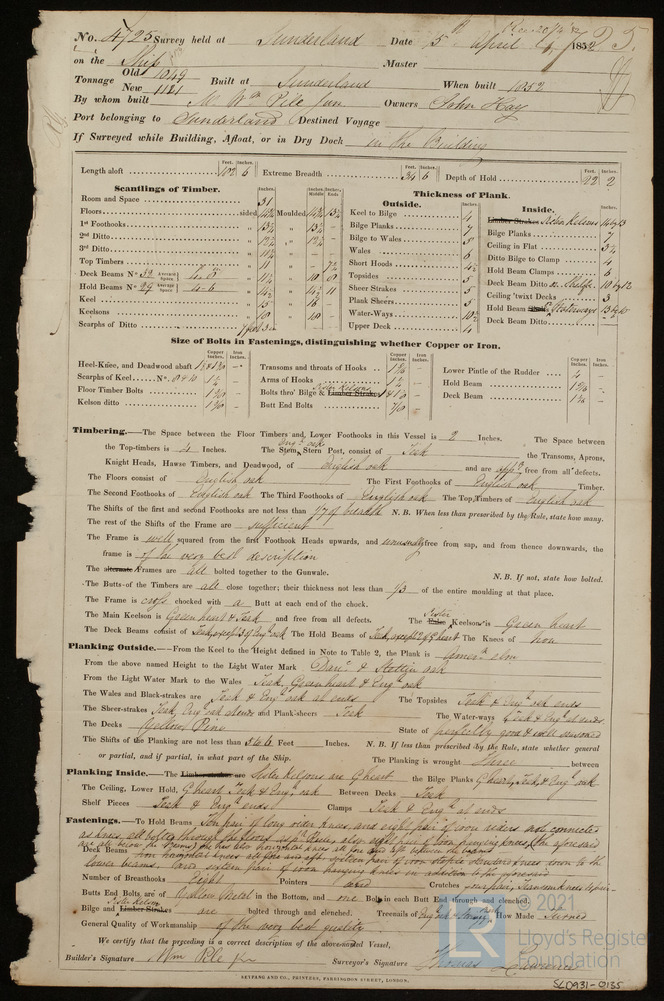 No. 4725 Survey held at Sunderland Date 5th April 1852
on the Ship Master
Tonnage Old 1049 New 1121 Built at Sunderland When built 1852
By whom built Mr Wm Pile Jun Owners John Hay
Port belonging to Sunderland Destined Voyage
If Surveyed while Building, Afloat, or in Dry Dock in the Building
Feet. Inches. Feet. Inches. Feet. Inches.
Length aloft 6 Extreme Breadth 34 6 Depth of Hold 22 2
Scantlings of Timber.
Room and Space 31
Floors sided Moulded
1st Foothooks
2nd Ditto
3rd Ditto
Top Timbers 11
Deck Beams No. 32 Average Space
Hold Beams No. 29 Average Space 4-6
Keel 15 16
Keelsons
Scarphs of Ditto
Thickness of Plank.
Outside.
Keel to Bilge 4
Bilge Planks 7
Bilge to Wales 5
Wales 6
Short Hoods 4½
Topsides 5
Sheer Strakes 5
Plank Sheers 5
Water-Ways 10½
Upper Deck 4
Inside.
Limber Strakes Sister Kelsons 14 by 13
Bilge Planks 7
Ceiling in Flat 3½
Ditto Bilge to Clamp 4
Hold Beam Clamps 6
Deck Beam Ditto Shelfs 10 by 12
Ceiling 'twixt Decks 3
Hold Beam Waterways
Deck Beam Ditto
Size of Bolts in Fastenings, distinguishing whether Copper or Iron.
Copper Inches. Iron Inches. Copper Inches. Iron Inches. Copper Inches. Iron Inches.
Heel-Knee, and Deadwood abaft
Scarphs of Keel No. 8 & 10
Floor Timber Bolts
Kelson ditto
Transoms and throats of Hooks
Arms of Hooks
Bolts thro' Bilge & Limber Strakes Sister Kelsons
Butt End Bolts 7/8
Lower Pintle of the Rudder 4
Hold Beam
Deck Beam
Timbering.—The Space between the Floor Timbers and Lower Foothooks in this Vessel is 2 Inches. The Space between
the Top-timbers is 4 Inches. The Stem, Engh oak Stern Post, consist of Teak the Transoms, Aprons,
Knight Heads, Hawse Timbers, and Deadwood, of English oak and are free from all defects.
The Floors consist of English oak The First Foothooks of English oak Timber.
The Second Foothooks of English oak The Third Foothooks of English oak The Top Timbers of English oak
The Shifts of the first and second Foothooks are not less than N. B. When less than prescribed by the Rule, state how many.
The rest of the Shifts of the Frame are sufficient
The Frame is well squared from the first Foothook Heads upwards, and unusually free from sap, and from thence downwards, the
frame is of the very best description
The alternate Frames are all bolted together to the Gunwale. N. B. If not, state how bolted.
The Butts of the Timbers are all close together; their thickness not less than 1/3 of the entire moulding at that place.
The Frame is cross chocked with a Butt at each end of the chock.
The Main Keelson is Greenheart & Teak and free from all defects. The False Sister Keelson is Green heart
The Deck Beams consist of Teak, except 3 of Engh oak The Hold Beams of Teak, except 2 of Gheart The Knees of Iron
Planking Outside.—From the Keel to the Height defined in Note to Table 2, the Plank is Amern elm
From the above named Height to the Light Water Mark Danc & Stettin oak
From the Light Water Mark to the Wales Teak, Greenheart & Engh oak
The Wales and Black-strakes are Teak & Engh oak at ends The Topsides Teak & Engh oak ends
The Sheer-strakes Teak, Engh oak at ends and Plank-sheers Teak The Water-ways Teak & Engh at ends.
The Decks Yellow Pine State of perfectly good & well seasoned
The Shifts of the Planking are not less than 5 & 6 Feet Inches. N. B. If less than prescribed by the Rule, state whether general
or partial, and if partial, in what part of the Ship. The Planking is wrought three between
Planking Inside.—The Limber-strakes are Sister Kelsons are Gheart the Bilge Planks Gheart, Teak, & Engh oak
The Ceiling, Lower Hold, Gheart, Teak & Engh oak Between Decks Teak
Shelf Pieces Teak & Engh ends Clamps Teak & Engh at ends
Fastenings.—To Hold Beams Ten pair of long rider knees, and eight pair of iron riders not connected
as knees, all bolted through the floors as pr Rule, also eight pair of Iron hanging knees, the aforesaid
are all below the beams, she has also horizontal knees all fore and aft between the beams
Deck Beams Iron horizontal knees all fore and aft, sixteen pair of iron staple standard knees down to the
lower beams, and sixteen pair of iron hanging knees in addition to the aforesaid
Number of Breasthooks Eight Pointers Crutches four pair,
Butts End Bolts are of Yellow Metal in the Bottom, and one Bolt in each Butt End through and clenched.
Bilge and Limber Strakes Sister Kelson are bolted through and clenched. Treenails of How Made Turned
General Quality of Workmanship of the very best quality
We certify that the preceding is a correct description of the above-named Vessel,
Builder's Signature Wm Pile jr Surveyor's Signature Thomas Lawrence
SEYFANG AND CO., PRINTERS, FARRINGDON STREET, LONDON.
© 2021
Lloyd's Register
Foundation
SLD931-0135